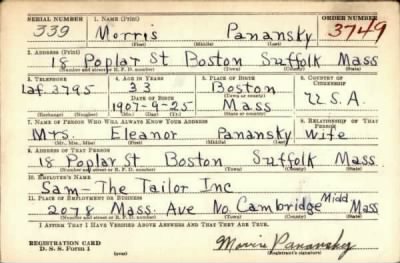 SERIAL NUMBER 1. NAME (Print) ORDER NUMBER
339 Morris Panansky 3749
(First) (Middle) (Last)
2. ADDRESS (Print)
18 Poplar St Boston Suffolk Mass
(Number and street or R. F. D. number) (Town) (County) (State)
3. TELEPHONE 4. AGE IN YEARS 5. PLACE OF BIRTH 6. COUNTRY OF CITIZENSHIP
Laf. 3795 33 Boston U.S.A.
DATE OF BIRTH (Town or county)
1907-9-25 Mass
(Exchange) (Number) (Mo.) (Day) (Yr.) (State or country)
7. NAME OF PERSON WHO WILL ALWAYS KNOW YOUR ADDRESS 8. RELATIONSHIP OF THAT PERSON
Mrs. Eleanor Panansky Wife
(Mr., Mrs., Miss) (First) (Middle) (Last)
9. ADDRESS OF THAT PERSON
18 Poplar St Boston Suffolk Mass.
(Number and street or R. F. D. number) (Town) (County) (State)
10. EMPLOYER'S NAME
Sam-The Tailor Inc
11. PLACE OF EMPLOYMENT OR BUSINESS
2078 Mass. Ave No. Cambridge Midd Mass
(Number and street or R. F. D. number) (Town) (County) (State)
I AFFIRM THAT I HAVE VERIFIED ABOVE ANSWERS AND THAT THEY ARE TRUE.
REGISTRATION CARD
D. S. S. Form 1 (over) Morris Panansky
(Registrant's signature)